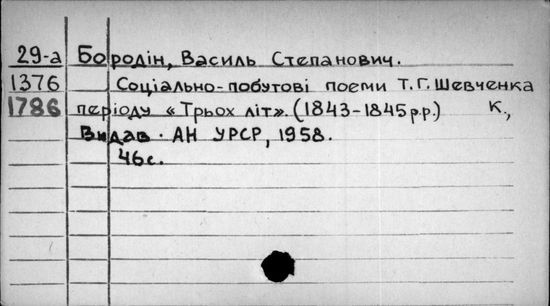 29-а Бородін, Василь Степанович.
1376 Соціально-побутові поеми Т.Г. Шевченка
1786 періоду «Трьох літ». (1843-1845 р.р.) К.,
Видав. АН УРСР, 1958.
46 с.